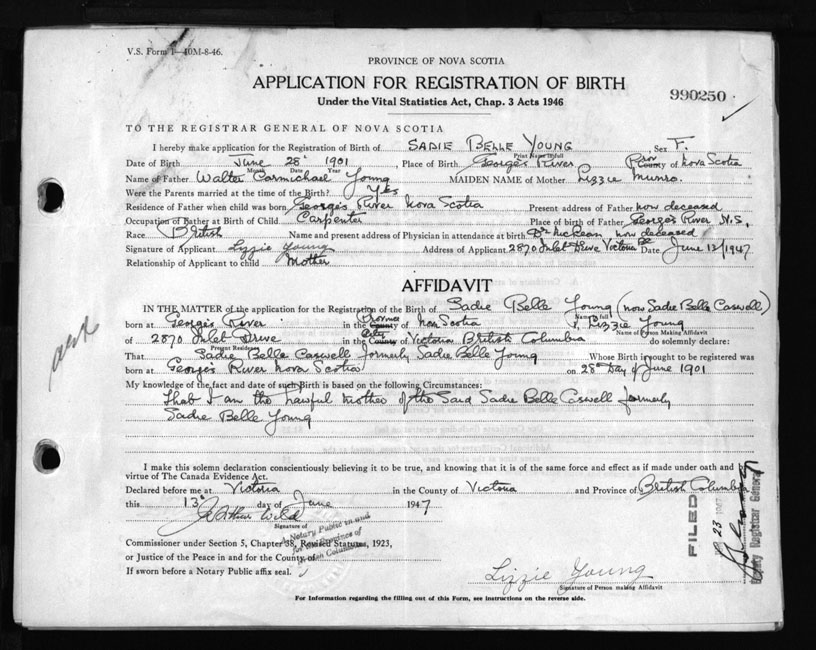 V.S. Form 1—40M-8-46.
PROVINCE OF NOVA SCOTIA
APPLICATION FOR REGISTRATION OF BIRTH
990250
Under the Vital Statistics Act, Chap. 3 Acts 1946
TO THE REGISTRAR GENERAL OF NOVA SCOTIA
I hereby make application for the Registration of Birth of SADIE BELLE YOUNG, Sex F.
Print Name in full
Date of Birth June 28 1901, Place of Birth George's River County of Nova Scotia
Month Date Year
Name of Father Walter Carmichael Young MAIDEN NAME of Mother Lizzie Munro.
Were the Parents married at the time of the Birth? Yes
Residence of Father when child was born George's River Nova Scotia Present address of Father now deceased
Occupation of Father at Birth of Child Carpenter Place of birth of Father George's River N.S,
Race British Name and present address of Physician in attendance at birth Dr McKean now deceased
Signature of Applicant Lizzie Young Address of Applicant 2870 Inlet Drive Victoria BC Date June 13/1947
Relationship of Applicant to child Mother
AFFIDAVIT
IN THE MATTER of the application for the Registration of Birth of Sadie Belle Young (now Sadie Belle Caswell)
Name in full
born at George's River in the Province County of Nova Scotia I, Lizzie Young
Name of Person Making Affidavit
of 2870 Inlet Drive in the City County of Victoria British Columbia do solemnly declare:
Present Residence
That Sadie Belle Caswell formerly Sadie Belle Young Whose Birth is sought to be registered was
born at George's River Nova Scotia on 28th Day of June 1901
My knowledge of the fact and date of such Birth is based on the following Circumstances:
That I am the Lawful mother of the Said Sadie Belle Caswell formerly
Sadie Belle Young
I make this solemn declaration conscientiously believing it to be true, and knowing that it is of the same force and effect as if made under oath and
virtue of The Canada Evidence Act.
Declared before me at Victoria in the County of Victoria and Province of British Columbia
this 13th day of June 1947
Signature of
Notary Public in and
for the Province of
British Columbia
Commissioner under Section 5, Chapter 38, Revised Statutes, 1923,
or Justice of the Peace in and for the County of
If sworn before a Notary Public affix seal.
Lizzie Young
Signature of Person making Affidavit
FILED
23 1947
Deputy Registrar General
For Information regarding the filling out of this Form, see instructions on the reverse side.